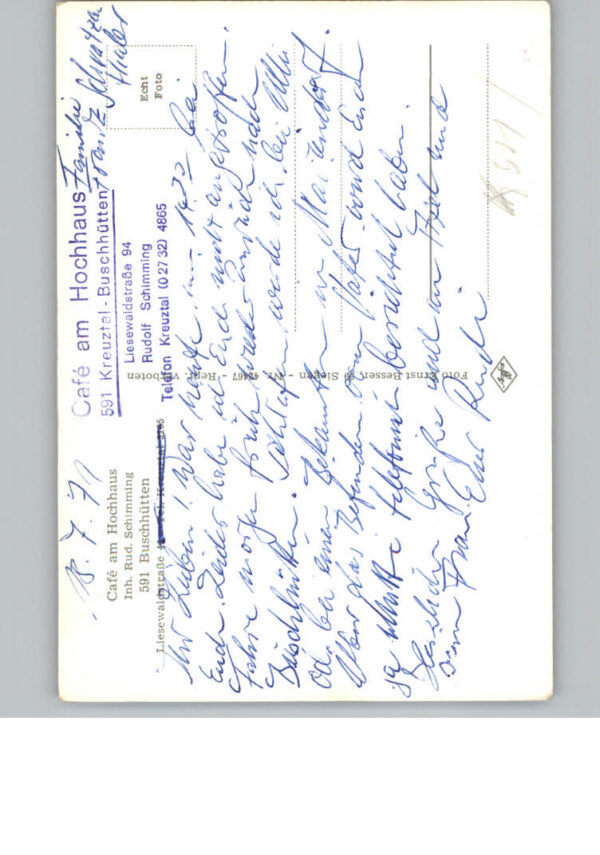 Café am Hochhaus
591 Kreuztal-Buschhütten
Liesewaldstraße 94
Rudolf Schimming
Telefon Kreuztal (0 27 32) 4865
Familie
Echt
Foto
Café am Hochhaus
Inh. Rud. Schimming
591 Buschhütten
Liesewaldstraße
Tel. Kreuztal
Foto Ernst Besser, Siegen
Repr. verboten
7. 71
Ihr Lieben! War heute um 14 30 bei
Euch. Leider habe ich Euch nicht angetroffen.
Fahre morgen früh wieder zurück nach
Buschhütten. Schlafen werde ich bei
oder bei einem Bekannten in Mariendorf.
Über das Befinden von Vater wird Euch
telefonisch berichtet haben.
Herzliche Grüße und an
seine Frau. Euer Rudi